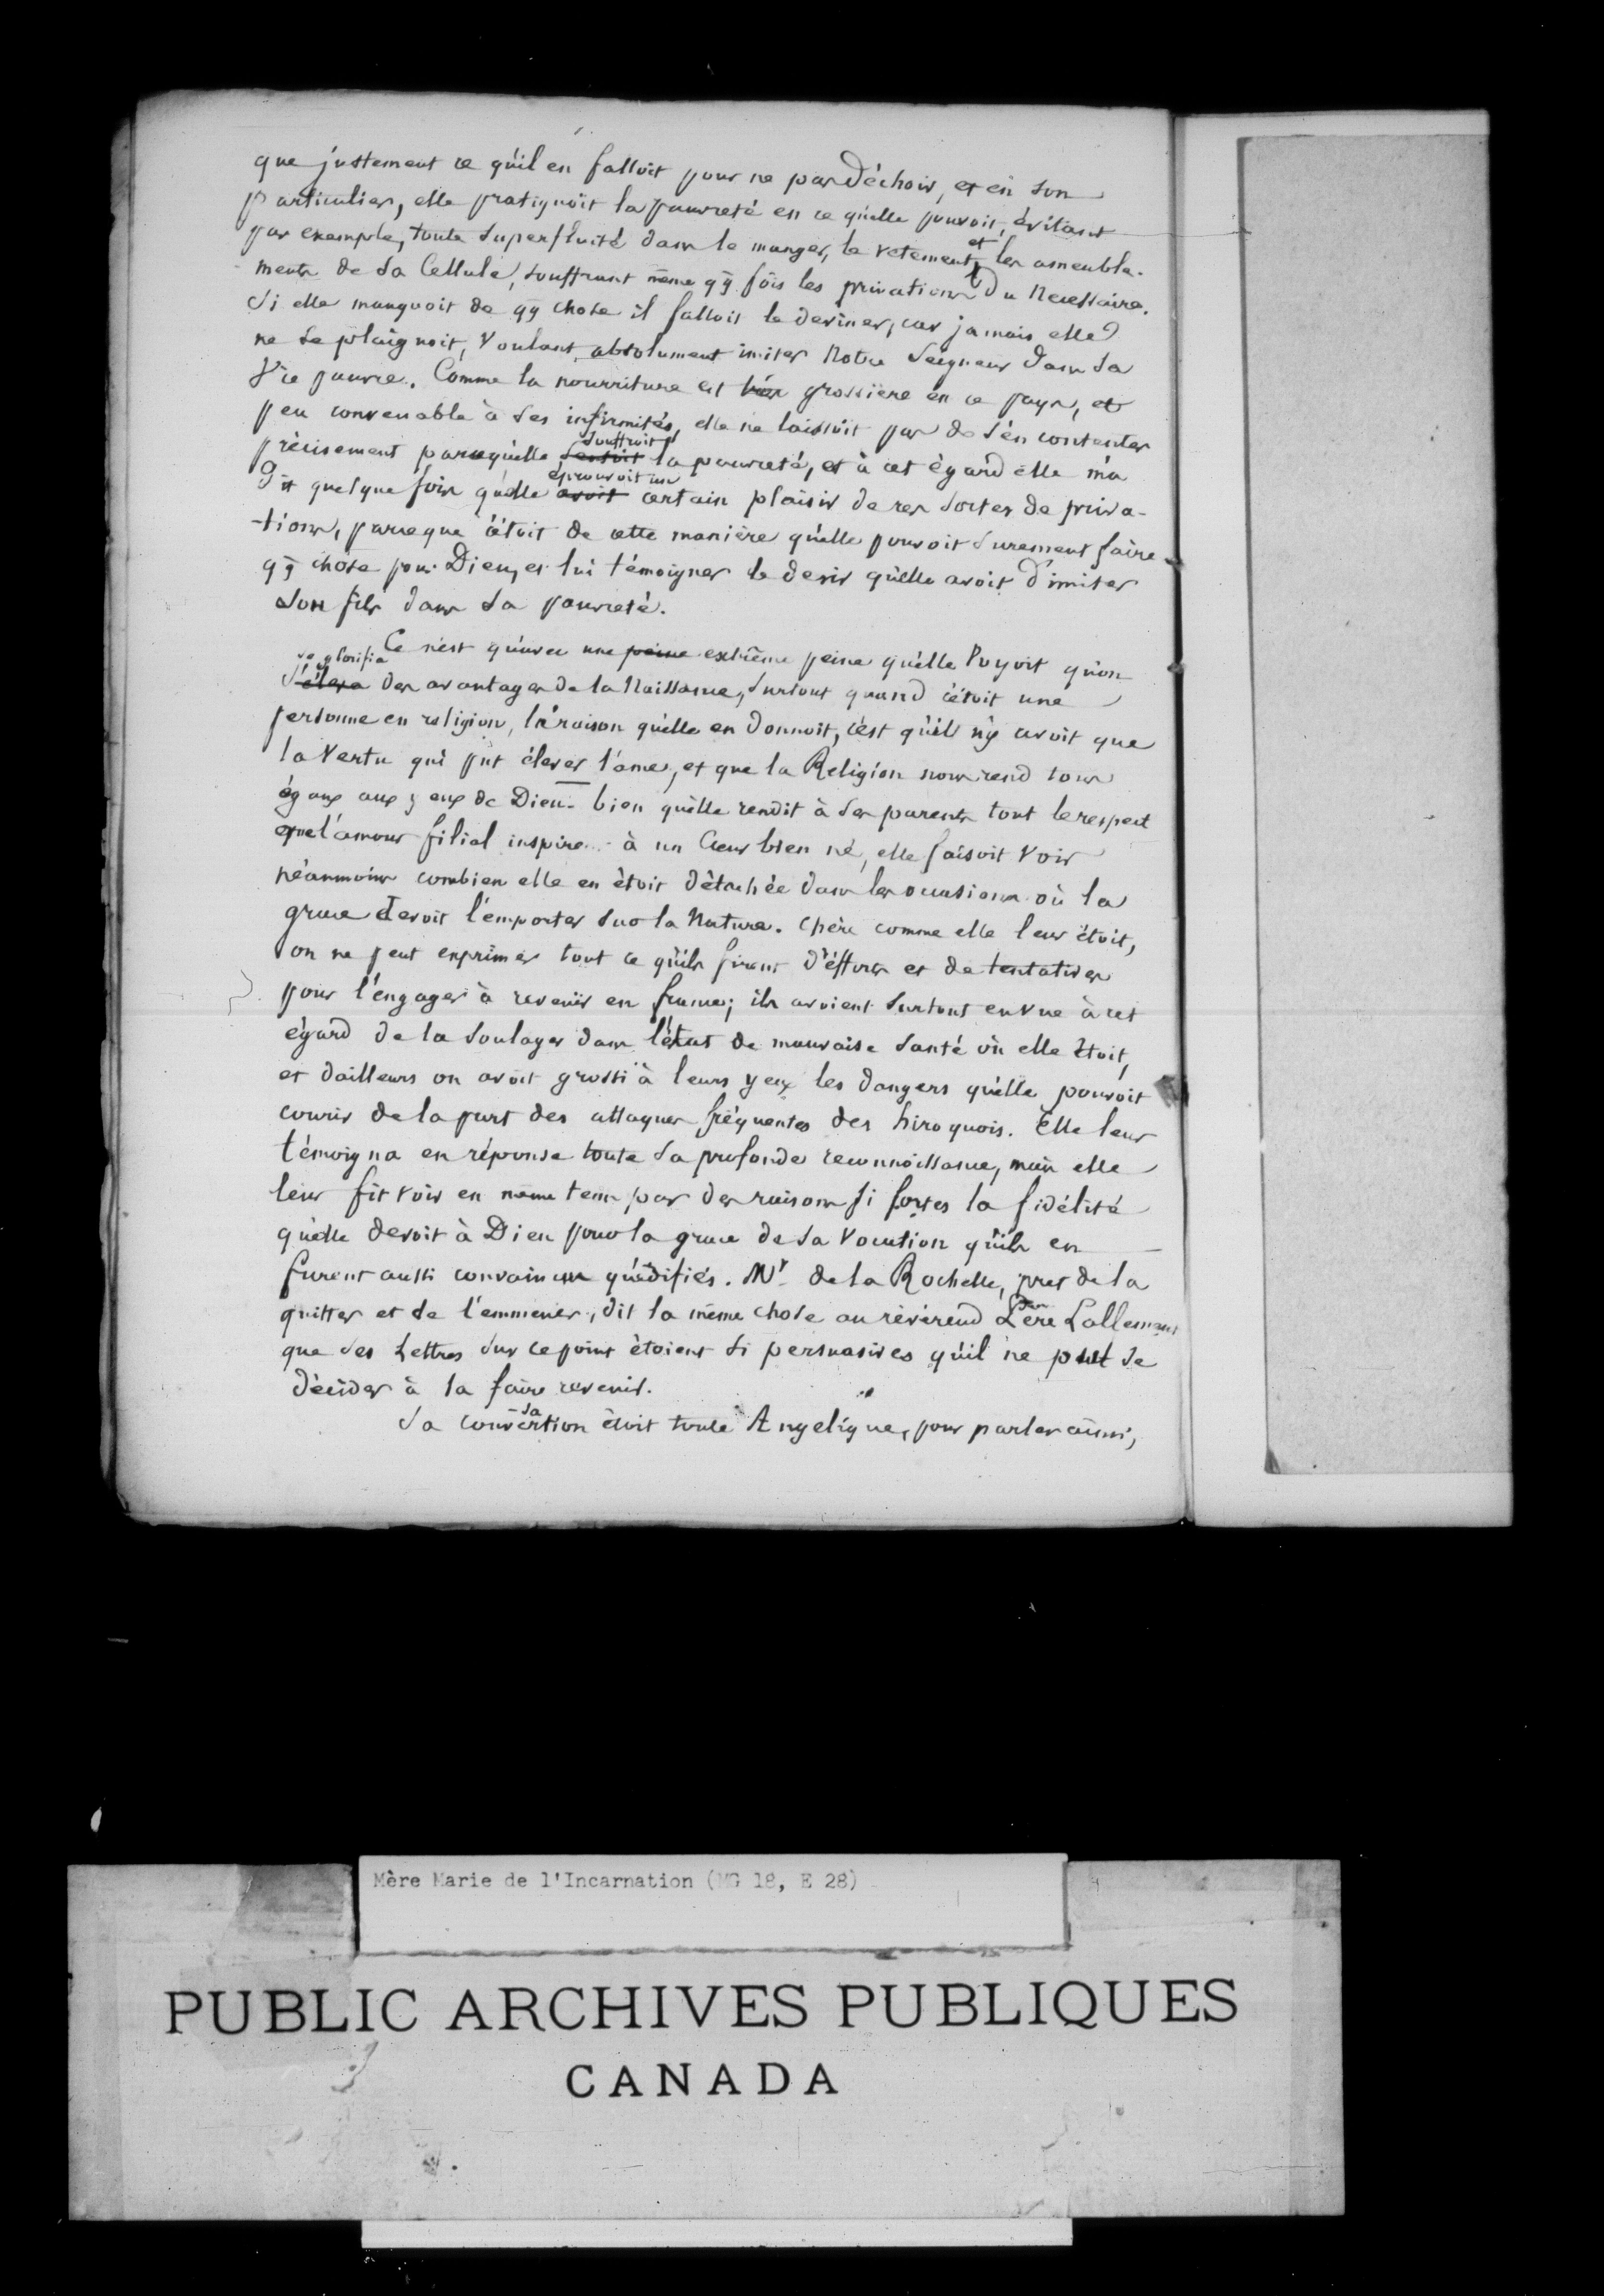 que justement ce qu'il en falloit pour ne pas déchoir, et en son
particulier, elle pratiquoit la pauvreté en ce qu'elle pouvoit, évitant
par exemple, toute superfluité dans le manger, le vetement, et les ameuble-
ments de sa Cellule, souffrant même qq fois les privations du Necessaire.
Si elle manquoit de qq chose il falloit le deviner, car jamais elle
ne se plaignoit, voulant absolument imiter Notre Seigneur dans sa
Vie pauvre. Comme la nourriture est très grossière en ce pays, et
peu convenable à ses infirmités, elle ne laissoit pas de s'en contenter
souffroit
précisement parcequ'elle sentoit la pauvreté, et à cet égard elle m'a
éprouvoit un
dit quelque fois qu'elle avoit certain plaisir de ces sortes de priva-
-tions, parceque c'étoit de cette manière qu'elle pouvoit surement faire
qq chose pour Dieu, et lui témoigner le desir qu'elle avoit d'imiter
son fils dans sa pauvreté.
Ce n'est qu'avec une peine extrême peine qu'elle voyoit qu'on
se glorifia
s'éleva des avantages de la Naissance, surtout quand c'étoit une
personne en religion, la raison qu'elle en donnoit, c'est qu'il n'y avoit que
la Vertu qui put élever l'ame, et que la Religion nous rend tous
égaux aux yeux de Dieu - bien qu'elle rendit à ses parents tout le respect
que l'amour filial inspire à un Cœur bien né, elle faisoit voir
néanmoins combien elle en étoit détachée dans les occasions où la
grace devoit l'emporter sur la Nature. Chère comme elle leur étoit,
on ne peut exprimer tout ce qu'ils firent d'éfforts et de tentatives
pour l'engager à revenir en france; ils avoient surtout en vue à cet
égard de la soulager dans l'état de mauvaise santé où elle étoit,
et dailleurs on avoit grossi à leurs yeux les dangers qu'elle pouvoit
courir de la part des attaques fréquentes des hiroquois. Elle leur
témoigna en réponse toute sa profonde reconnoissance, mais elle
leur fit voir en meme tems, par des raisons si fortes la fidélité
qu'elle devoit à Dieu pour la grace de sa Vocation qu'ils en
furent aussi convaincus qu'édifiés. Mr. de la Rochelle, pret de la
quitter et de l'emmener, dit la même chose au révérend Père Lallemant
que ses Lettres sur ce point étoient si persuasives qu'il ne put se
décider à la faire revenir.
sa
Sa convertion étoit toute Angelique, pour parler ainsi,
Mère Marie de l'Incarnation (MG 18, E 28)
PUBLIC ARCHIVES PUBLIQUES
CANADA